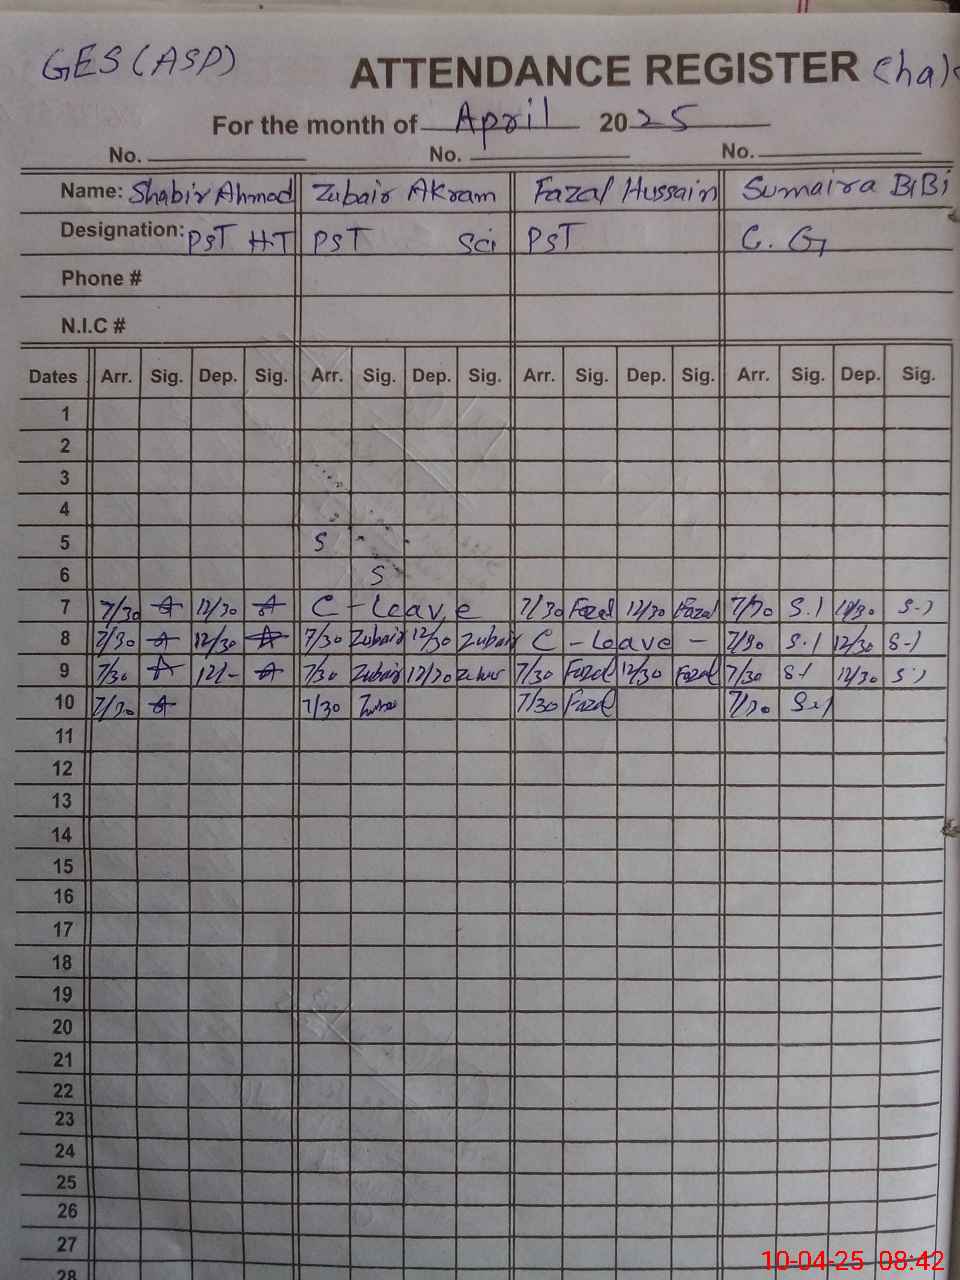 GES (ASP)
ATTENDANCE REGISTER
For the month of April 2025
No. No. No.
Name: Shabir Ahmad Zubair Akram Fazal Hussain Sumaira BiBi
Designation: PST HT PST Sci PST C. G
Phone #
N.I.C #
Dates Arr. Sig. Dep. Sig. Arr. Sig. Dep. Sig. Arr. Sig. Dep. Sig. Arr. Sig. Dep. Sig.
1
2
3
4
5 S
6 S
7 7/30 12/30 C - Leave 7/30 Fazal 12/30 Fazal 7/30 S.1 12/30 S-1
8 7/30 12/30 7/30 Zubair 12/30 Zubair C - Leave - 7/30 S.1 12/30 S-1
9 7/30 12/- 7/30 Zubair 12/30 7/30 Fazal 12/30 Fazal 7/30 S-1 12/30 S-1
10 7/30 7/30 7/30 Fazal 7/30 S-1
11
12
13
14
15
16
17
18
19
20
21
22
23
24
25
26
27
28
10-04-25 08:42